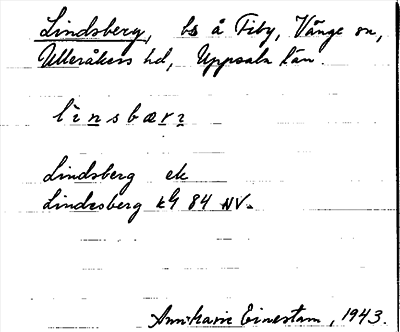 Lindsberg, bs å Fiby, Vänge sn,
Ulleråkers hd, Uppsala län.
linsbærı
Lindsberg ek
Lindesberg kG 84 NV.
Ann-Marie Einestam, 1943.